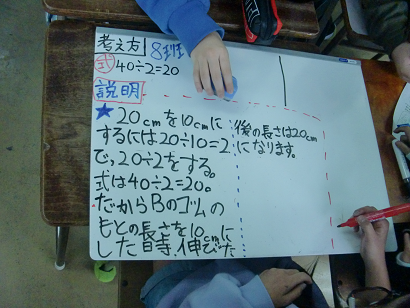 考え方 8班
式 40÷2=20
説明
★20cmを10cmに
するには20÷10=2
で、20÷2をする。
式は40÷2=20。
だからBのゴムの
もとの長さを10cmに
した時、伸びた
後の長さは20cm
になります。